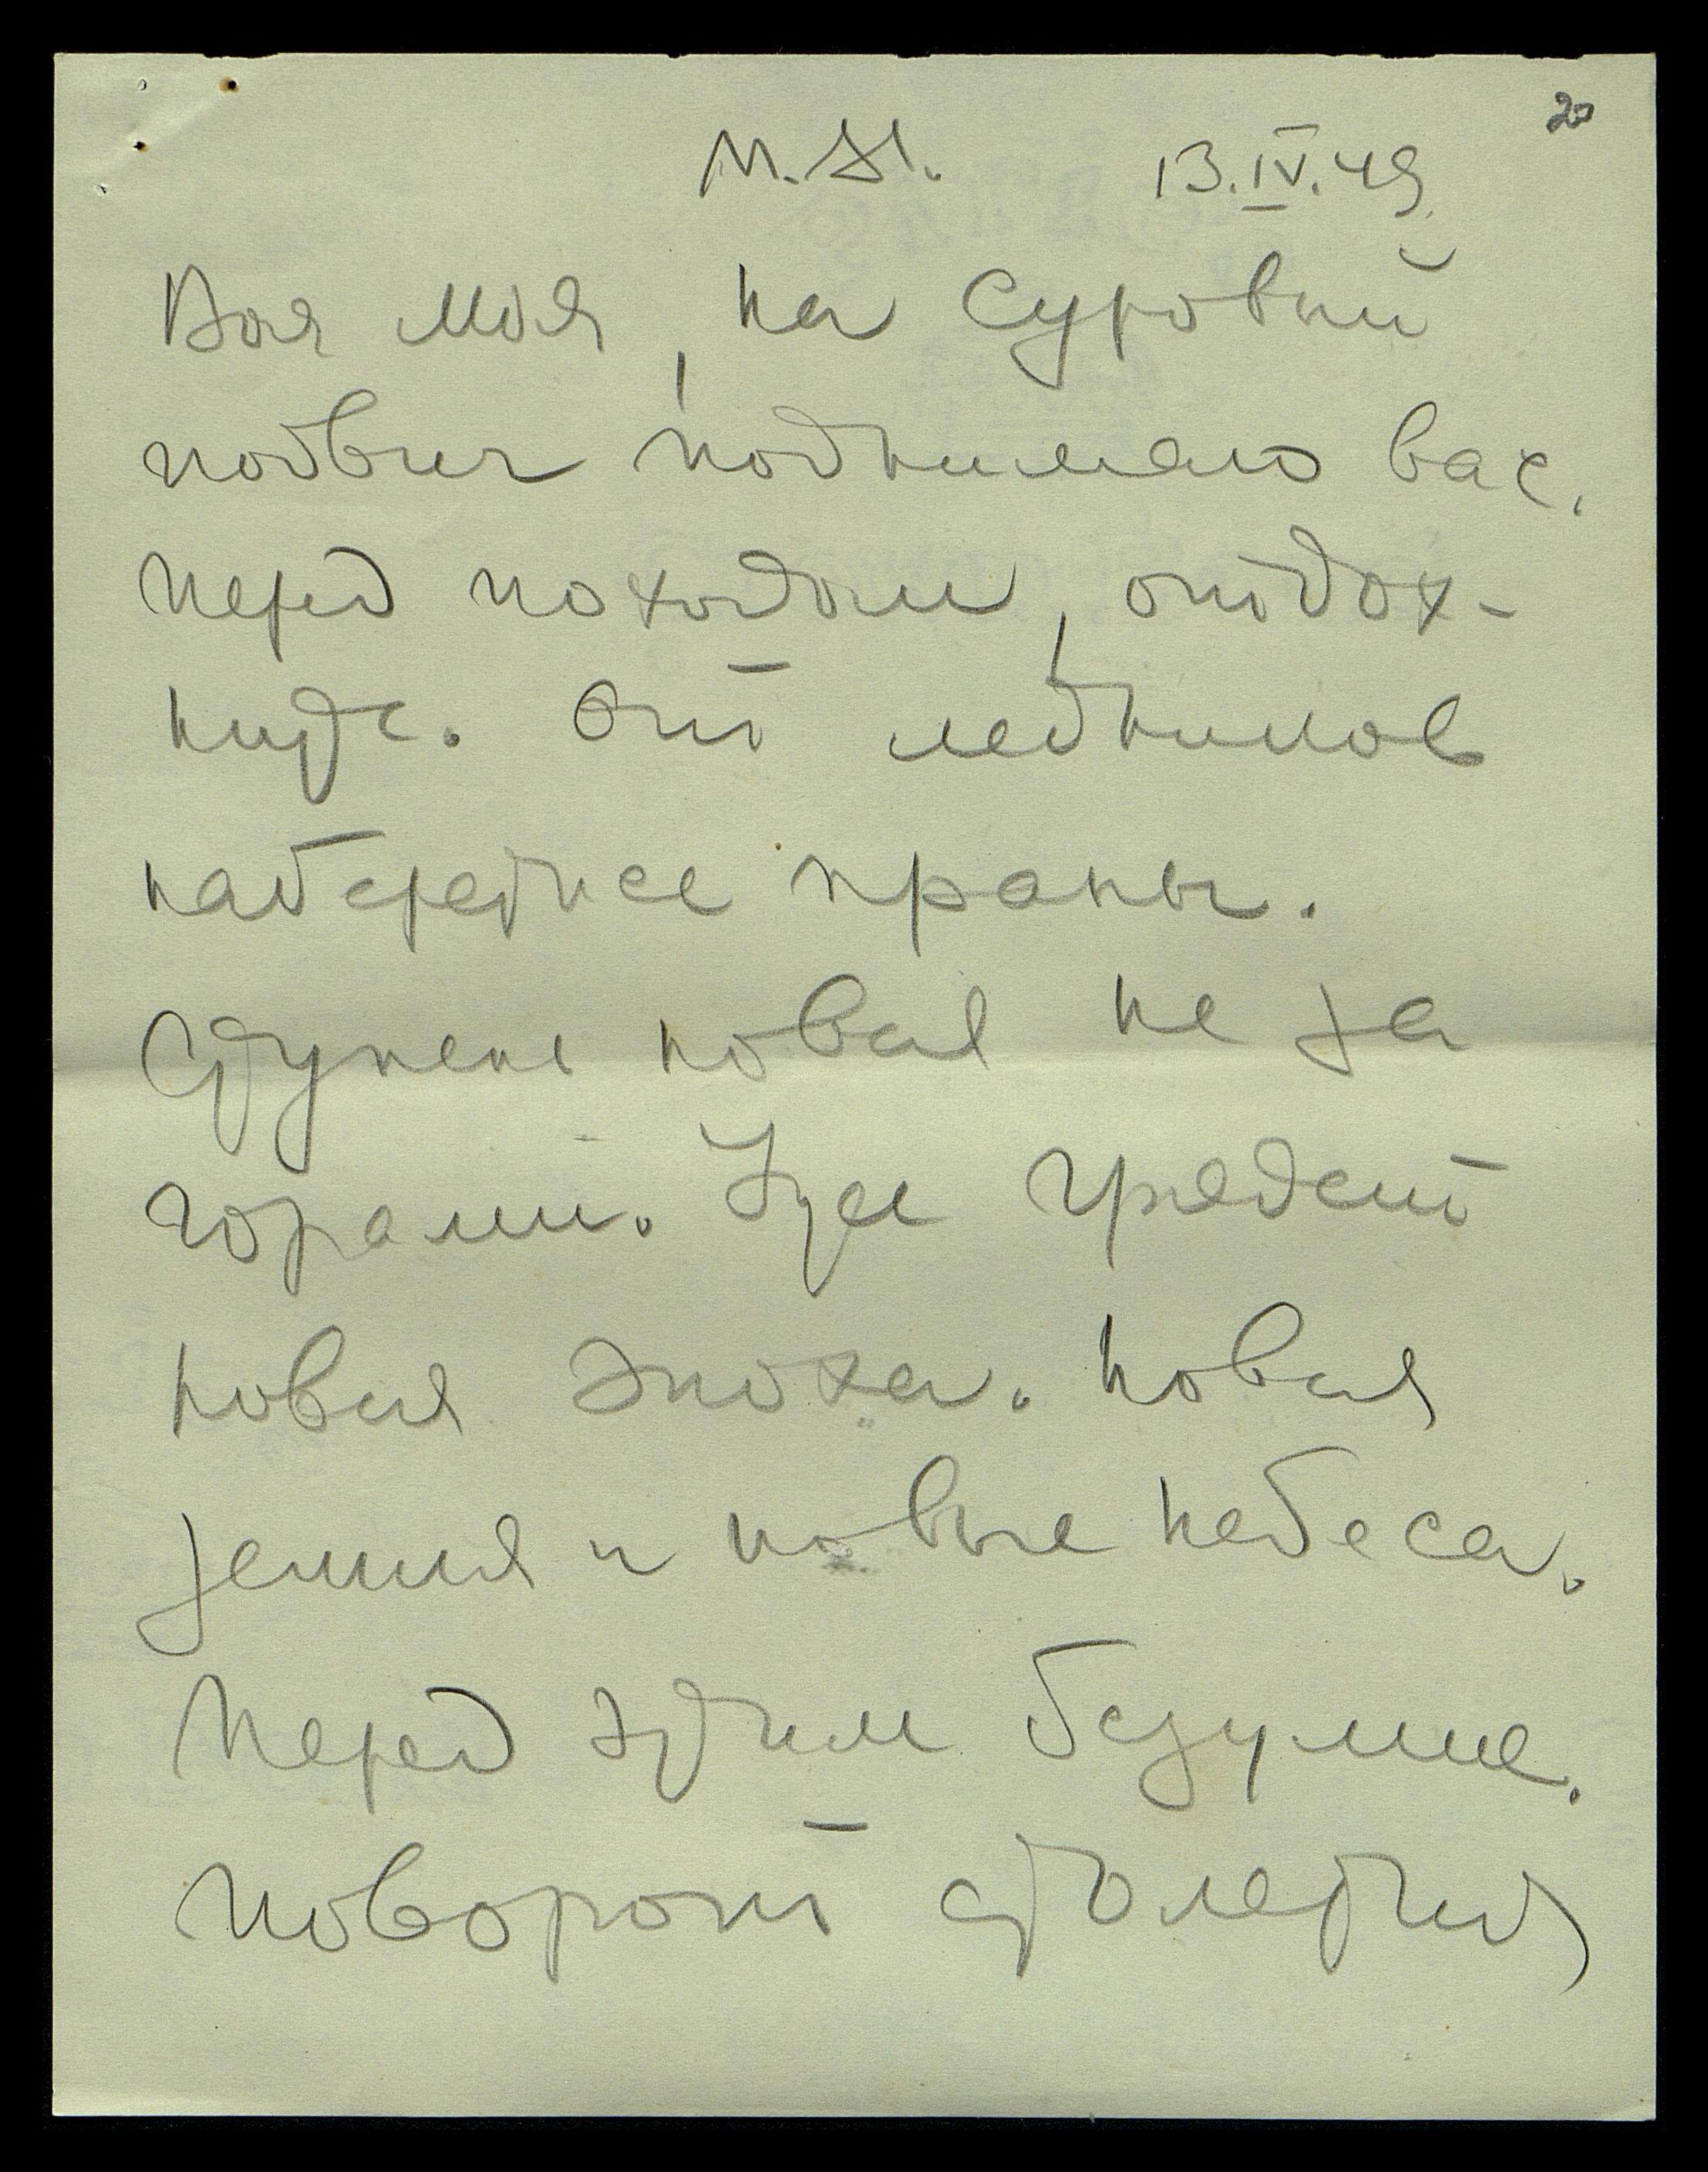 20
М.М. 13.IV.49
Воя моя, на суровый
подвиг поднимаю вас.
Перед походом, отдох-
ните. От ледников
наберитесь праны.
Ступень новая не за
горами. Уже грядет
новая эпоха. Новая
земля и новые небеса.
Перед этим безумие.
Поворот столетия